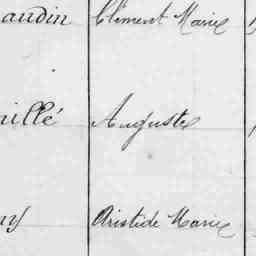 audin Clément Marie
illé Auguste
ny Aristide Marie